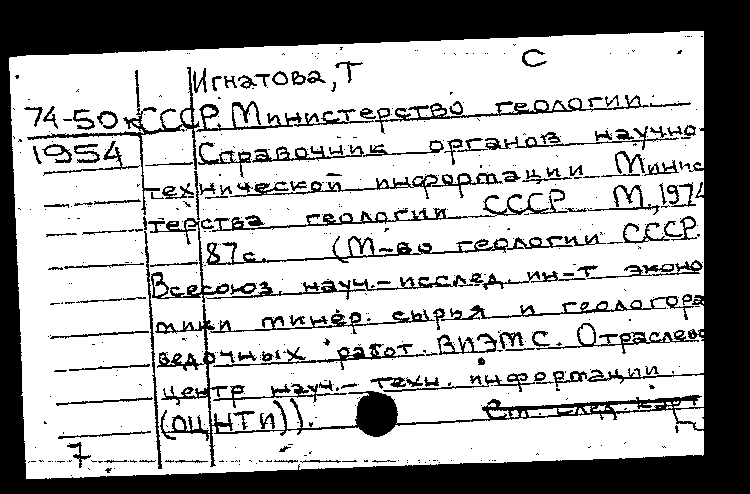 С
Игнатова, Т
74-50к СССР. Министерство геологии.
1954 Справочник органов научно-
технической информации Минис
терства геологии СССР. М., 1974
87с. (М-во геологии СССР.
Всесоюз. науч.-исслед. ин-т эконо
мики минер. сырья и геологора
ведочных работ. ВИЭМС. Отраслево
центр науч.- техн. информации
(ОЦНТИ)).
См. след. карт
7